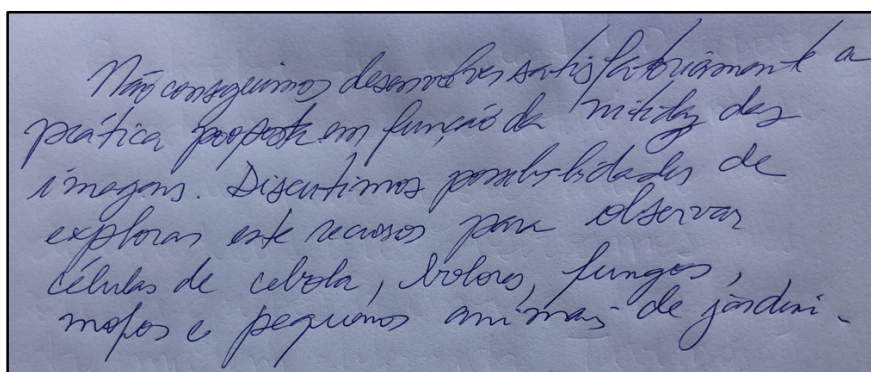 Não conseguimos desenvolver satisfatoriamente a
prática proposta em função da nitidez das
imagens. Discutimos possibilidades de
explorar este recurso para observar
células de cebola, bolores, fungos,
mofos e pequenos animais de jardim.